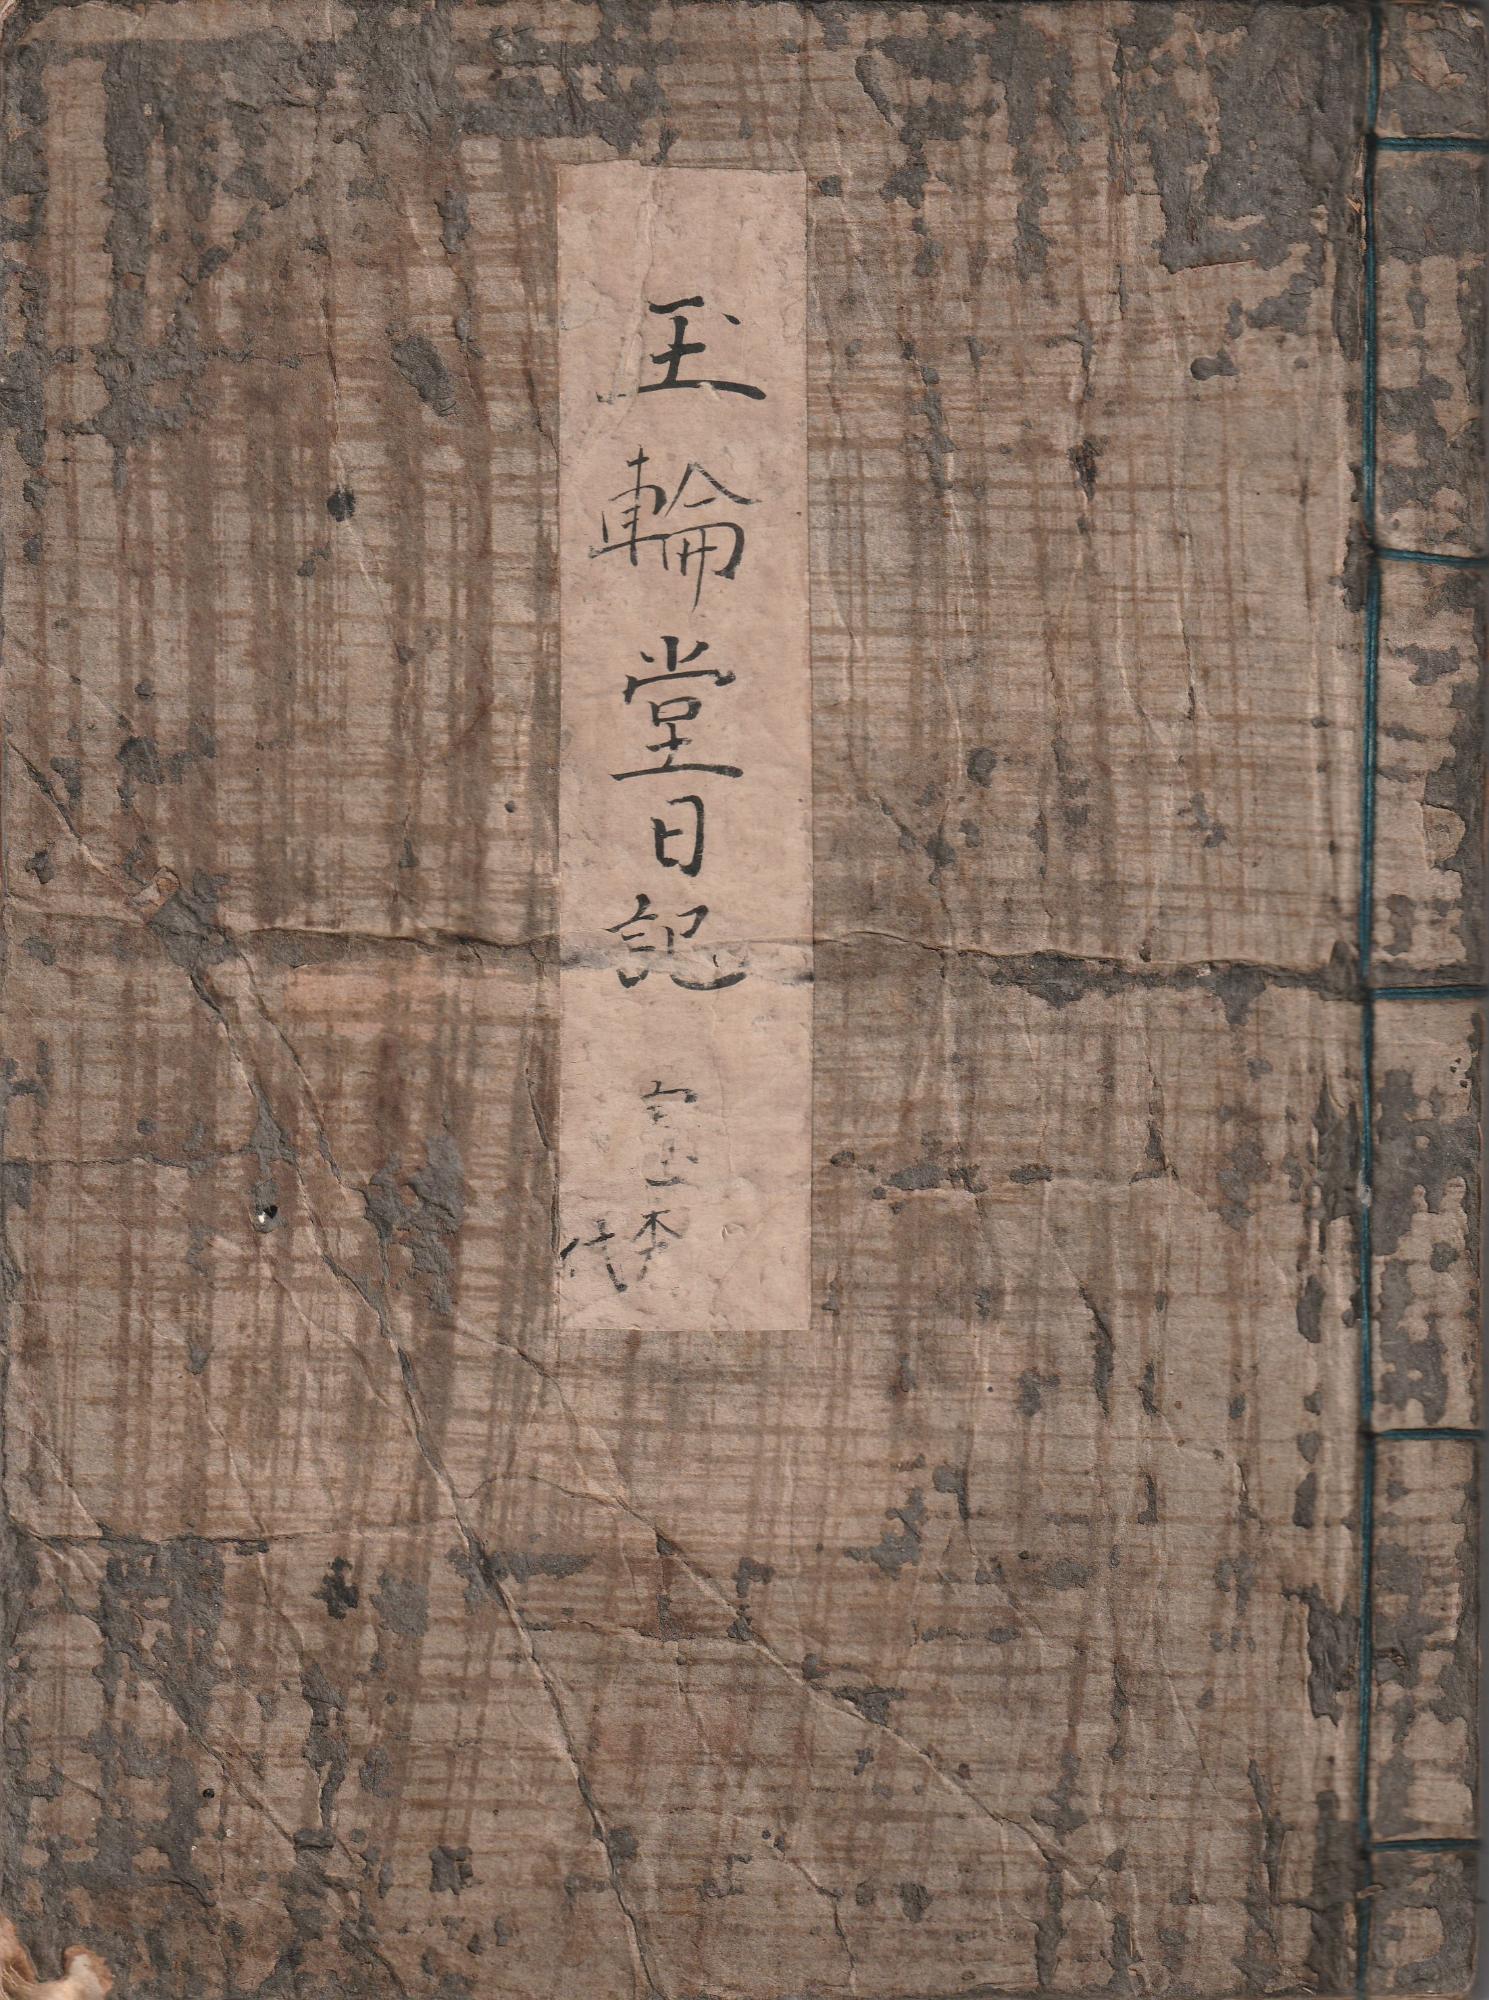 玉輪堂日記